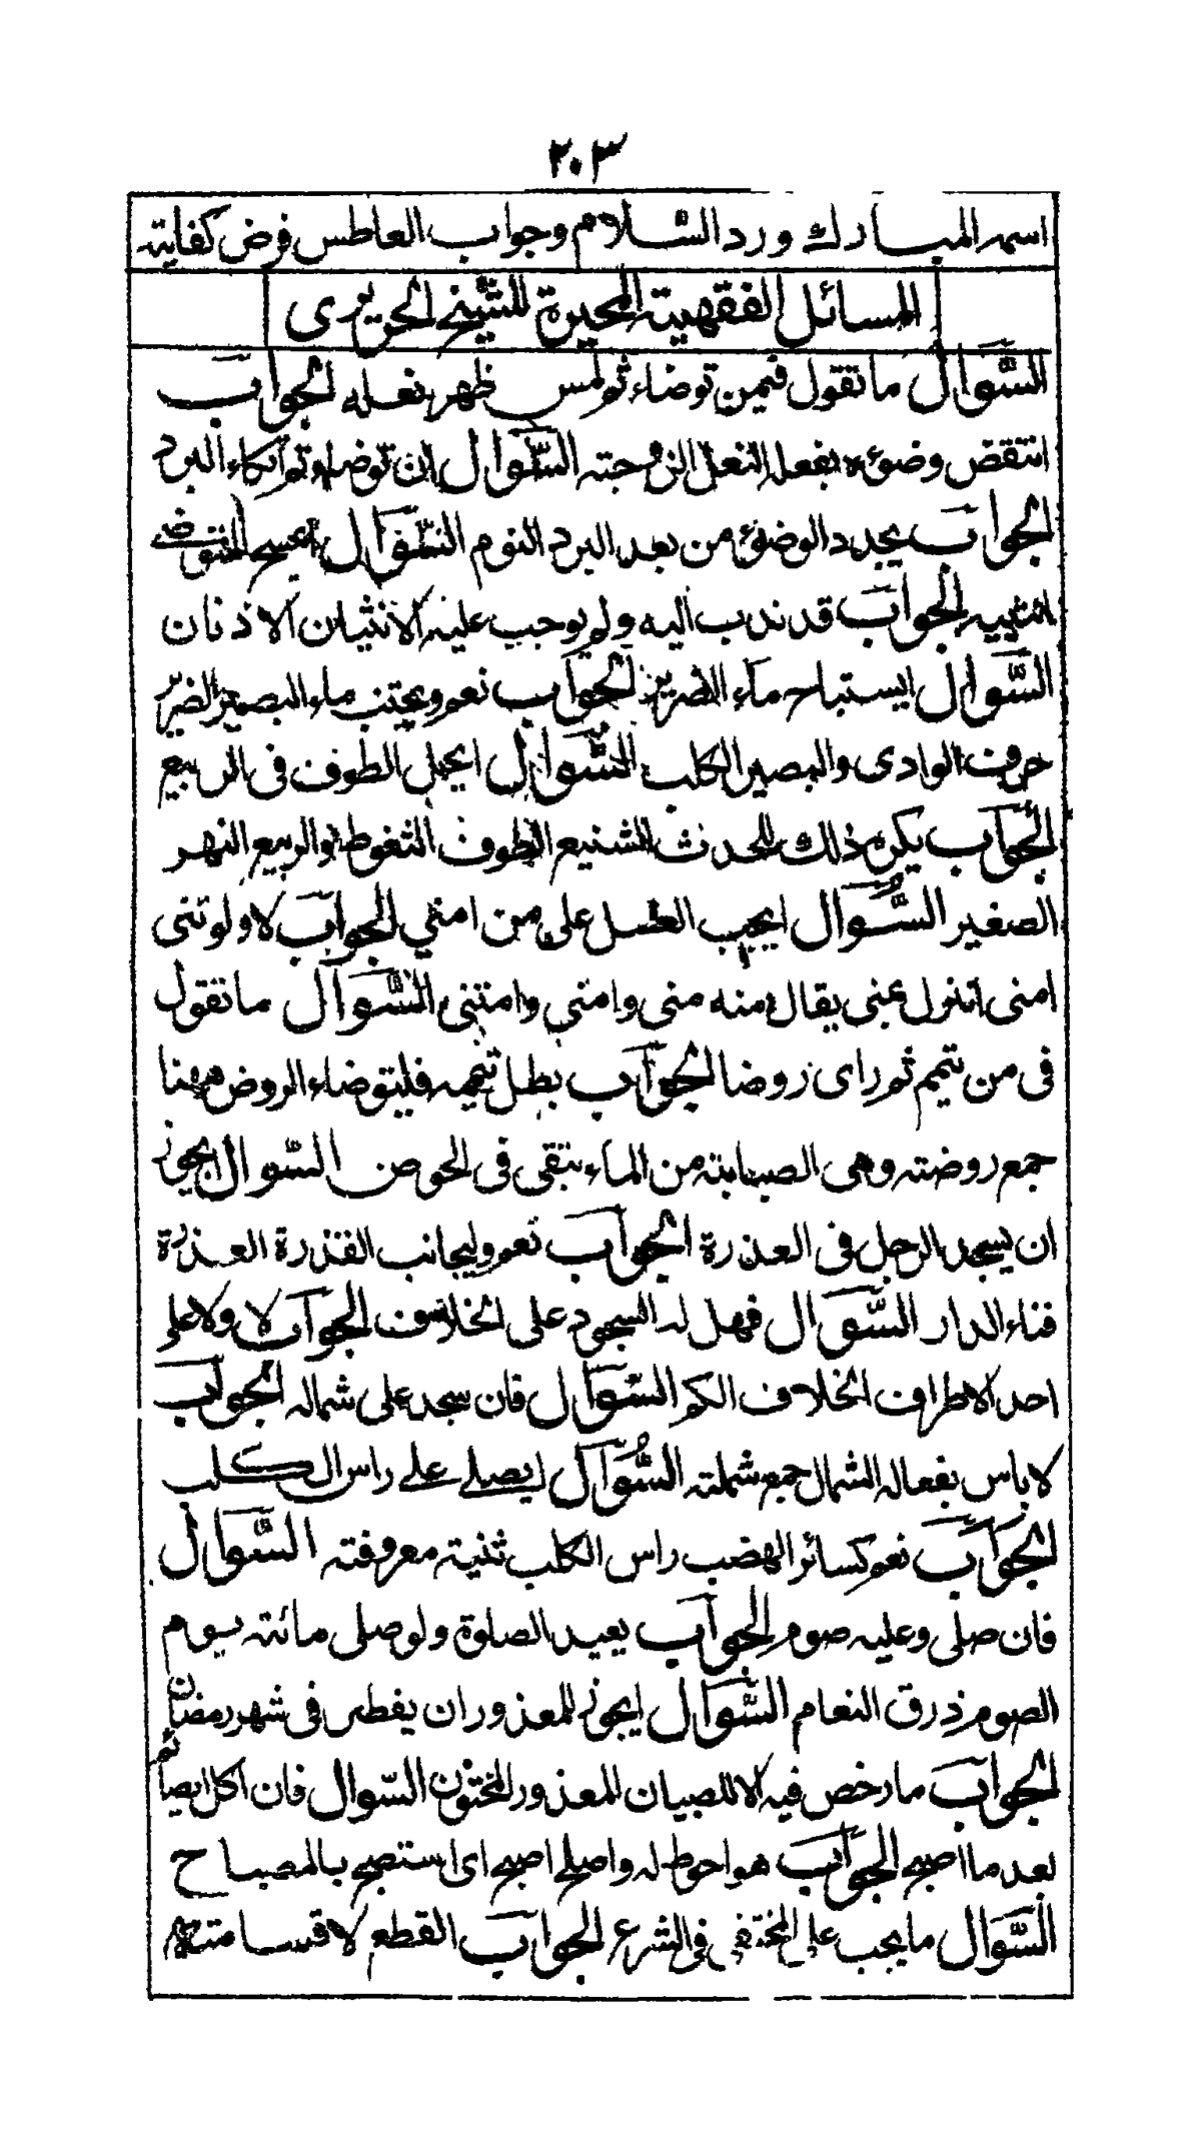 ٢٠٣
اسمه المبارك ورد السلام وجواب العاطس فرض كفاية
المسائل الفقهية المحيرة للشيخ الحريرى
السّوال ما تقول فيمن توضاء ثم لمس ظهر نعله الجواب
انتقض وضوءه بفعله النعل الزوجته السّوال ان توضاء ثم اتكاء البرد
الجواب يجدد الوضوء من بعد البرد النوم السّوال ايمسح المتوضى
انثييه الجواب قد ندب اليه ولم يوجب عليه الانثيان الاذنان
السّوال ايستباح ماء الضرير الجواب نعم ويجتنب ماء البصير الضرير
حرف الوادى والبصير الكلب السّوال ايحل الطوف فى الربيع
الجواب يكره ذلك للحدث الشنيع الطوف التغوط والربيع النهر
الصغير السّوال ايجب الغسل على من امنى الجواب لا ولو ثنى
امنى انزل بمنى يقال منه منى وامنى وامتنى السّوال ما تقول
فى من تيمم ثم راى روضا الجواب بطل تيممه فليتوضاء الروض ههنا
جمع روضته وهى الصبابته من الماء تبقى فى الحوض السّوال ايجوز
ان يسجد الرجل فى العذرة الجواب نعم وليجانب القذرة العذرة
فناء الدار السّوال فهل له السجود على الخلاف الجواب لا ولا على
احد الاطراف الخلاف الكم السّوال فان سجد على شماله الجواب
لا باس بفعاله الشمال جمع شملته السّوال ايصلے علے راس الكلب
الجواب نعم كسائر الهضب راس الكلب ثنية معروفته السّوال
فان صلى وعليه صوم الجواب يعيد الصلوة ولو صلى مائته يوم
الصوم ذرق النعام السّوال ايجوز للمعذور ان يفطر فى شهر رمضان
الجواب ما رخص فيه الا للصبيان المعذور المختون السّوال فان اكل الصائم
بعد ما اصبح الجواب هو احوط له واصلح اصبح اى استصبح بالمصباح
السّوال ما يجب على المختفى فى الشرع الجواب القطع لاقسا مته